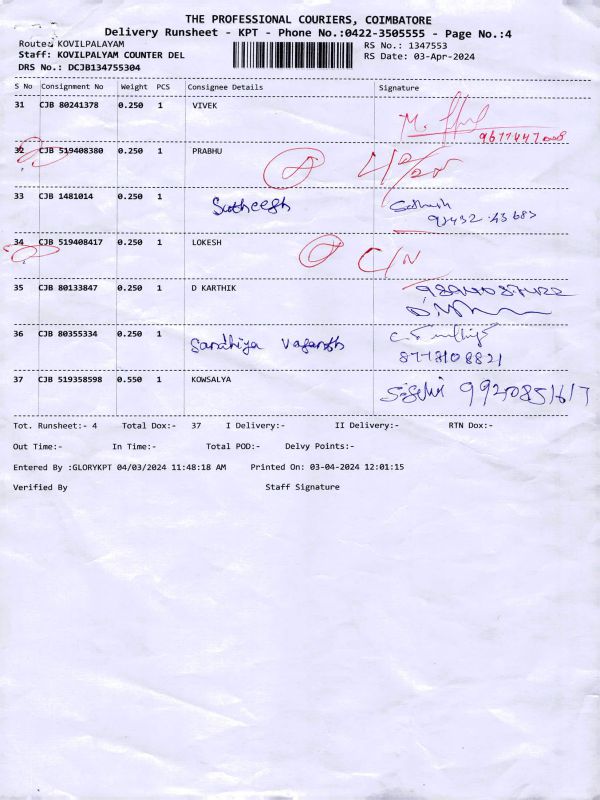 THE PROFESSIONAL COURIERS, COIMBATORE
Delivery Runsheet - KPT - Phone No.:0422-3505555 - Page No.:4
Route: KOVILPALAYAM RS No.: 1347553
Staff: KOVILPALYAM COUNTER DEL RS Date: 03-Apr-2024
DRS No.: DCJB134755304
S No Consignment No Weight PCS Consignee Details Signature
31 CJB 80241378 0.250 1 VIVEK
32 CJB 519408380 0.250 1 PRABHU
33 CJB 1481014 0.250 1 Satheesh
34 CJB 519408417 0.250 1 LOKESH C/N
35 CJB 80133847 0.250 1 D KARTHIK
36 CJB 80355334 0.250 1 Sandhiya
8778108821
37 CJB 519358598 0.550 1 KOWSALYA 9920851617
Tot. Runsheet:- 4 Total Dox:- 37 I Delivery:- II Delivery:- RTN Dox:-
Out Time:- In Time:- Total POD:- Delvy Points:-
Entered By :GLORYKPT 04/03/2024 11:48:18 AM Printed On: 03-04-2024 12:01:15
Verified By Staff Signature